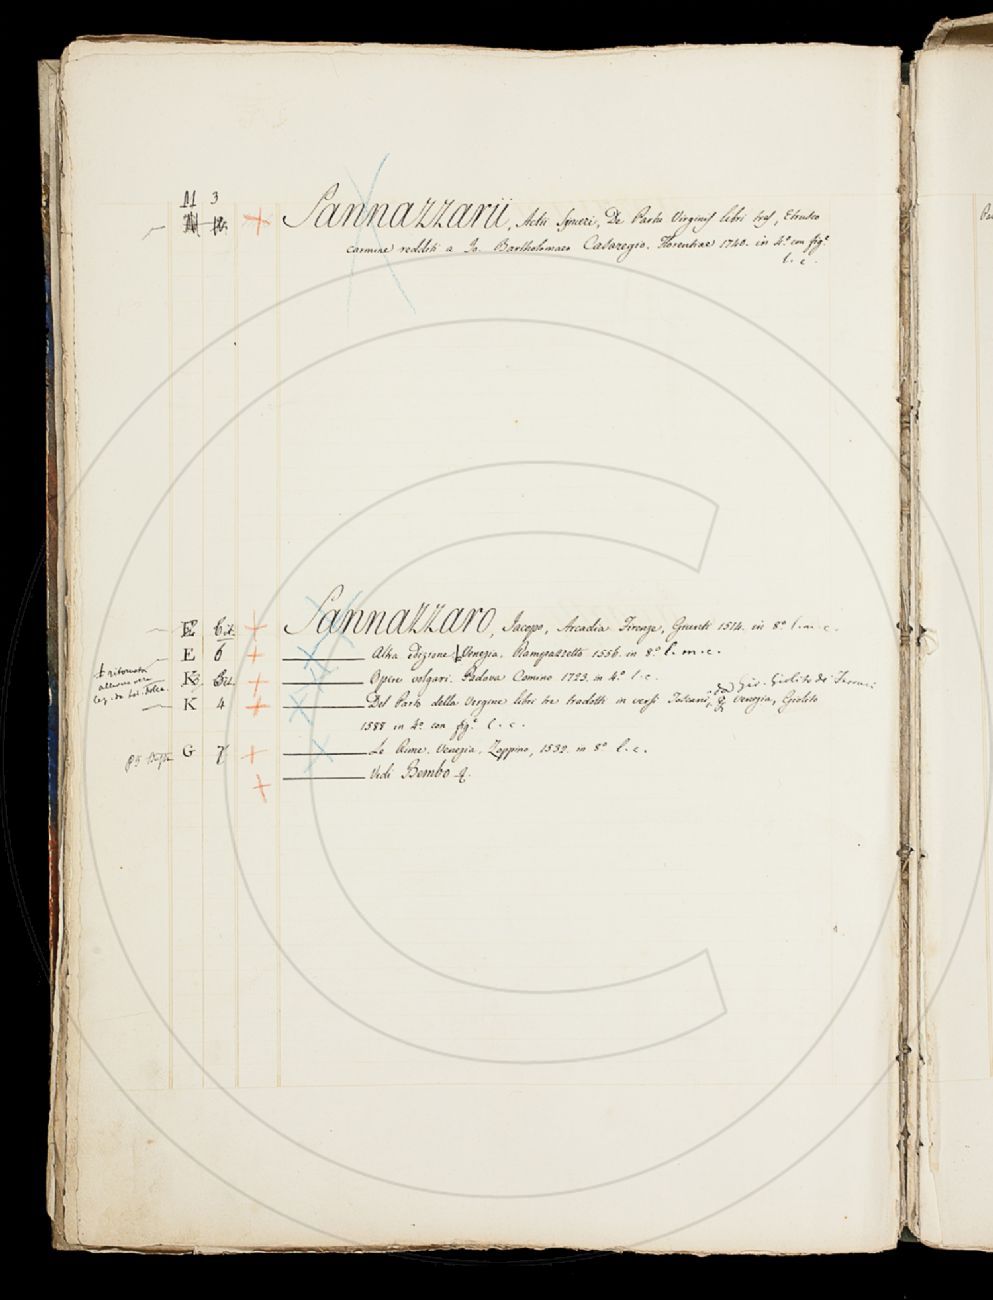 M 3
Sannazzarii, Actii Synceri, De Partu Virginis libri tres, Etrusco
carmine redditi a Jo. Bartholomaeo Casaregio. Florentiae 1740. in 4.º con fig.e
l. c.
E Sannazzaro, Jacopo, Arcadia Firenze, Giunti 1514. in 8.º l. m. c.
E 6 Altra Edizione Venezia. Rampazzetto 1556. in 8.º l. m. c.
K Opere volgari. Padova Comino 1723. in 4.º l. c.
da Gio. Giolito de' Ferrari
K 4 Del Parto della Vergine libri tre tradotti in versi Toscani, Venezia, Giolito
1588 in 4.º con fig.e l. c.
G 7 Le Rime. Venezia, Zoppino, 1532. in 8.º l. c.
Vedi Bembo
ritornata